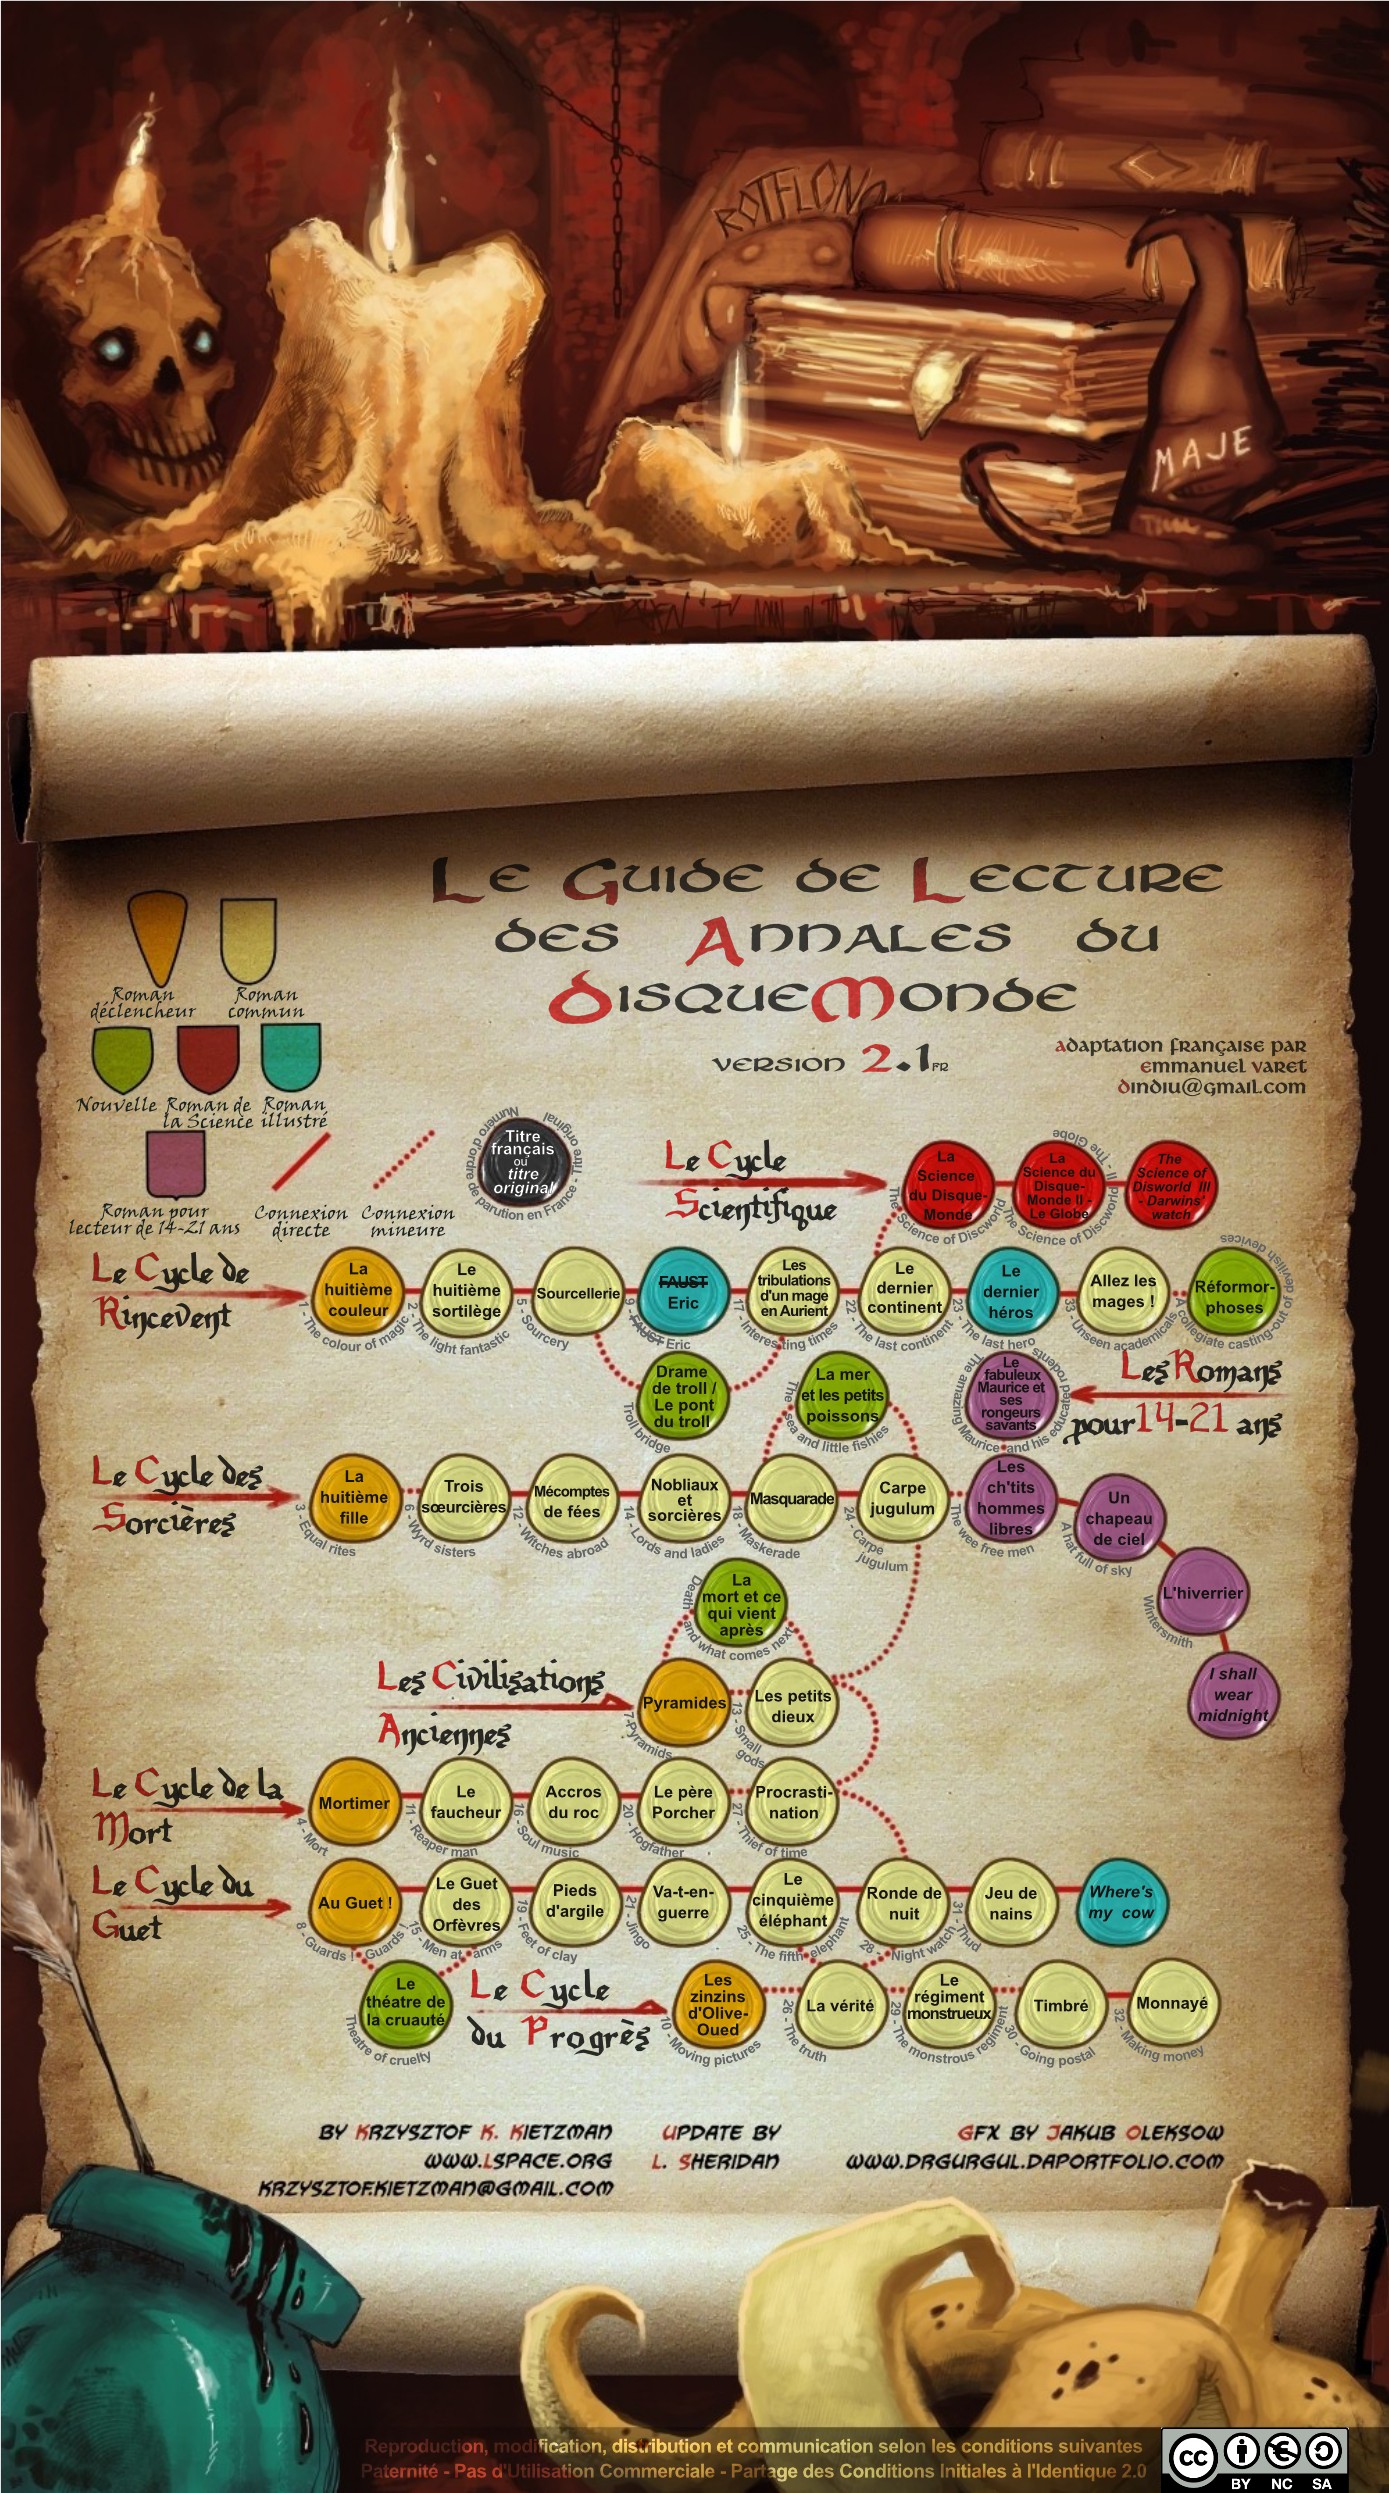 ROTFLONO
MAJE
Le Guide de Lecture
des Annales du
DisqueMonde
version 2.1FR
adaptation française par
emmanuel varet
dindiu@gmail.com
Roman
déclencheur
Roman
commun
Nouvelle
Roman de
la Science
Roman
illustré
Roman pour
lecteur de 14-21 ans
Connexion
directe
Connexion
mineure
Titre
français
ou
titre
original
Numéro d'ordre de parution en France - Titre original
Le Cycle
Scientifique
La
Science
du Disque-
Monde
The Science of Discworld
La
Science du
Disque-
Monde II -
Le Globe
The Science of Discworld II - The Globe
The
Science of
Disworld III
- Darwins'
watch
Le Cycle de
Rincevent
La
huitième
couleur
1 - The colour of magic
Le
huitième
sortilège
2 - The light fantastic
Sourcellerie
5 - Sourcery
FAUST
Eric
9 - FAUST Eric
Les
tribulations
d'un mage
en Aurient
17 - Interesting times
Le
dernier
continent
22 - The last continent
Le
dernier
héros
23 - The last hero
Allez les
mages !
33 - Unseen academicals
Réformor-
phoses
A collegiate casting-out of devilish devices
Drame
de troll /
Le pont
du troll
Troll bridge
La mer
et les petits
poissons
The sea and little fishies
Le
fabuleux
Maurice et
ses
rongeurs
savants
The amazing Maurice and his educated rodents
Les Romans
pour 14-21 ans
Le Cycle des
Sorcières
La
huitième
fille
3 - Equal rites
Trois
sœurcières
6 - Wyrd sisters
Mécomptes
de fées
12 - Witches abroad
Nobliaux
et
sorcières
14 - Lords and ladies
Masquarade
18 - Maskerade
Carpe
jugulum
24 - Carpe jugulum
Les
ch'tits
hommes
libres
The wee free men
Un
chapeau
de ciel
A hat full of sky
L'hiverrier
Wintersmith
I shall
wear
midnight
La
mort et ce
qui vient
après
Death and what comes next
Les Civilisations
Anciennes
Pyramides
7-Pyramids
Les petits
dieux
13 - Small gods
Le Cycle de la
Mort
Mortimer
4 - Mort
Le
faucheur
11 - Reaper man
Accros
du roc
16 - Soul music
Le père
Porcher
20 - Hogfather
Procrasti-
nation
27 - Thief of time
Le Cycle du
Guet
Au Guet !
8 - Guards ! Guards !
Le Guet
des
Orfèvres
15 - Men at arms
Pieds
d'argile
19 - Feet of clay
Va-t-en-
guerre
21 - Jingo
Le
cinquième
éléphant
25 - The fifth elephant
Ronde de
nuit
28 - Night watch
Jeu de
nains
31 - Thud
Where's
my cow
Le
théatre de
la cruauté
Theatre of cruelty
Le Cycle
du Progrès
Les
zinzins
d'Olive-
Oued
10 - Moving pictures
La vérité
26 - The truth
Le
régiment
monstrueux
29 - The monstrous regiment
Timbré
30 - Going postal
Monnayé
32 - Making money
by Krzysztof K. Kietzman
www.Lspace.org
krzysztof.kietzman@gmail.com
Update by
L. Sheridan
Gfx by Jakub Oleksow
www.drgurgul.daportfolio.com
Reproduction, modification, distribution et communication selon les conditions suivantes
Paternité - Pas d'Utilisation Commerciale - Partage des Conditions Initiales à l'Identique 2.0
cc
BY NC SA